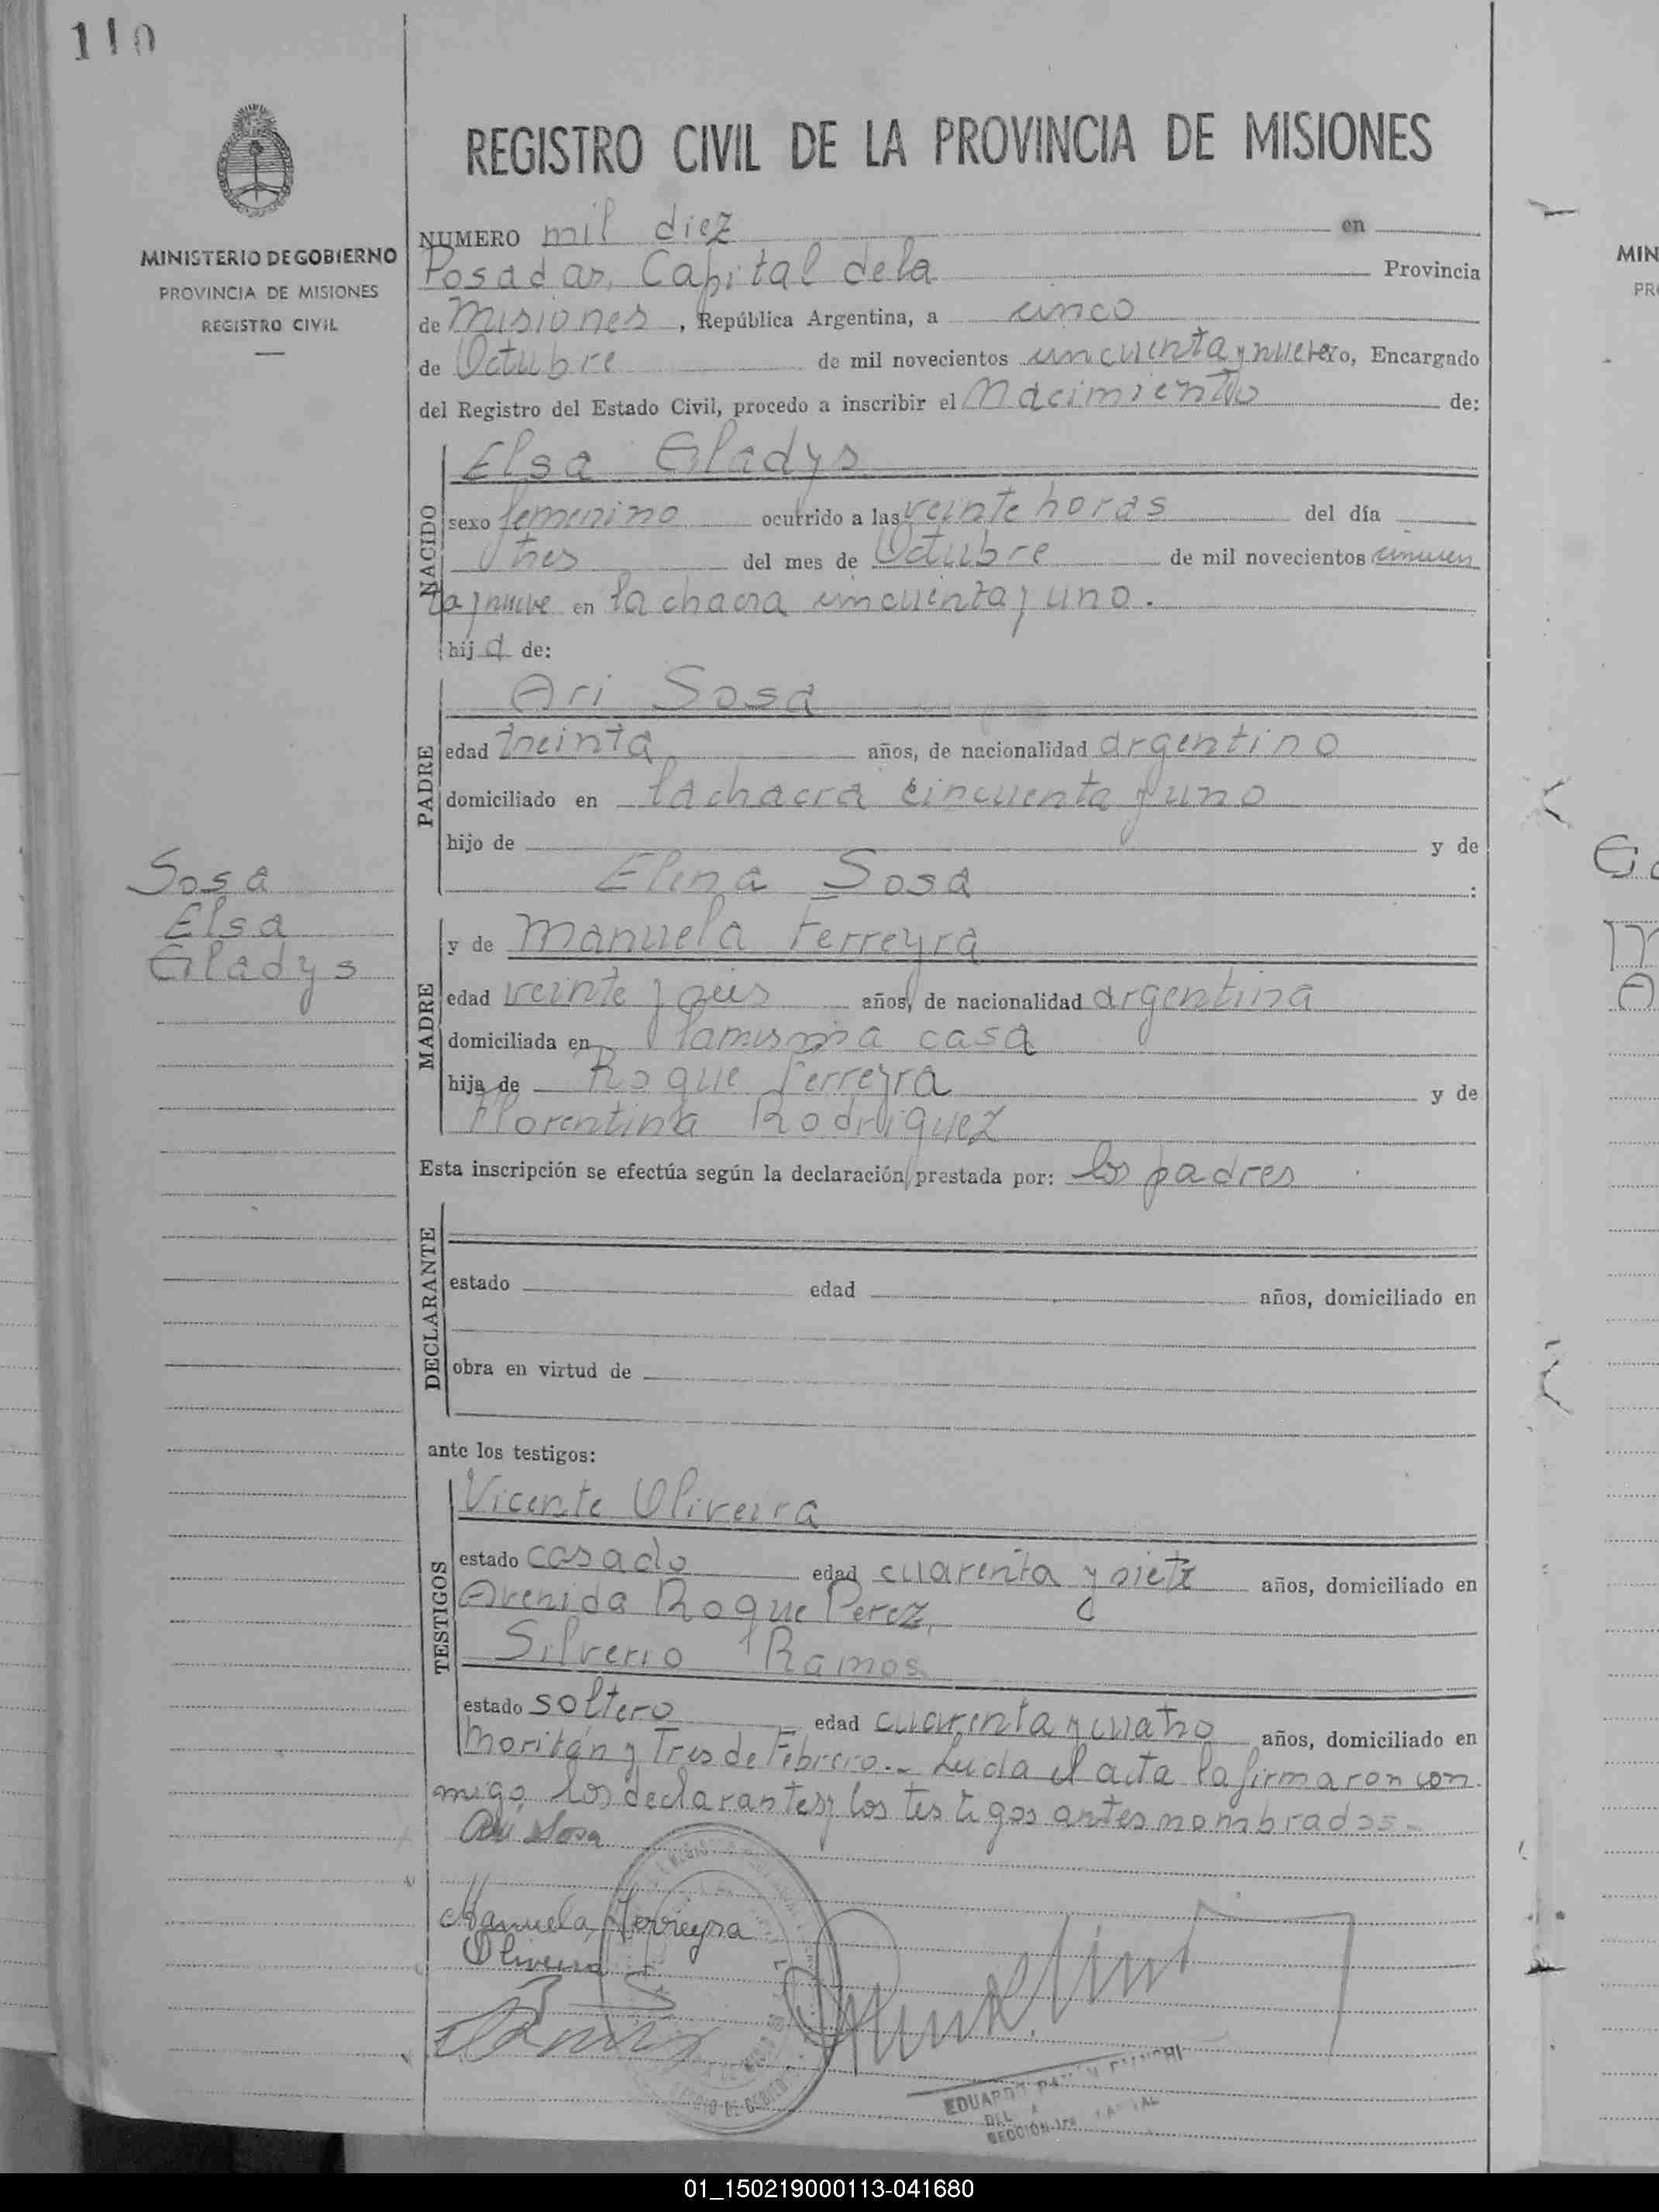 110
REGISTRO CIVIL DE LA PROVINCIA DE MISIONES
MINISTERIO DE GOBIERNO
PROVINCIA DE MISIONES
REGISTRO CIVIL
NUMERO mil diez en
Posadas, Capital de la Provincia
de Misiones, República Argentina, a cinco
de Octubre de mil novecientos cincuenta y nueve yo, Encargado
del Registro del Estado Civil, procedo a inscribir el Nacimiento de:
NACIDO
Elsa Gladys
sexo femenino ocurrido a las veinte horas del día
tres del mes de Octubre de mil novecientos cincuen
ta y nueve en la chacra cincuenta y uno.
hij a de:
PADRE
Ari Sosa
edad treinta años, de nacionalidad argentino
domiciliado en la chacra cincuenta y uno
hijo de y de
Elena Sosa :
Sosa
Elsa
Gladys
MADRE
y de Manuela Ferreyra
edad veinte y seis años, de nacionalidad argentina
domiciliada en la misma casa
hija de Roque Ferreyra y de
Florentina Rodriguez
Esta inscripción se efectúa según la declaración prestada por: los padres
DECLARANTE
estado edad años, domiciliado en
obra en virtud de
ante los testigos:
TESTIGOS
Vicente Oliveira
estado casado edad cuarenta y siete años, domiciliado en
Avenida Roque Perez,
Silverio Ramos
estado soltero edad cuarenta y cuatro años, domiciliado en
Moritán y Tres de Febrero.- Leida el acta la firmaron con
migo los declarantes y los testigos antes nombrados.-
Ari Sosa
Manuela Ferreyra
Oliveira
EDUARDO
DEL
SECCIÓN
MIN
PR
01_150219000113-041680